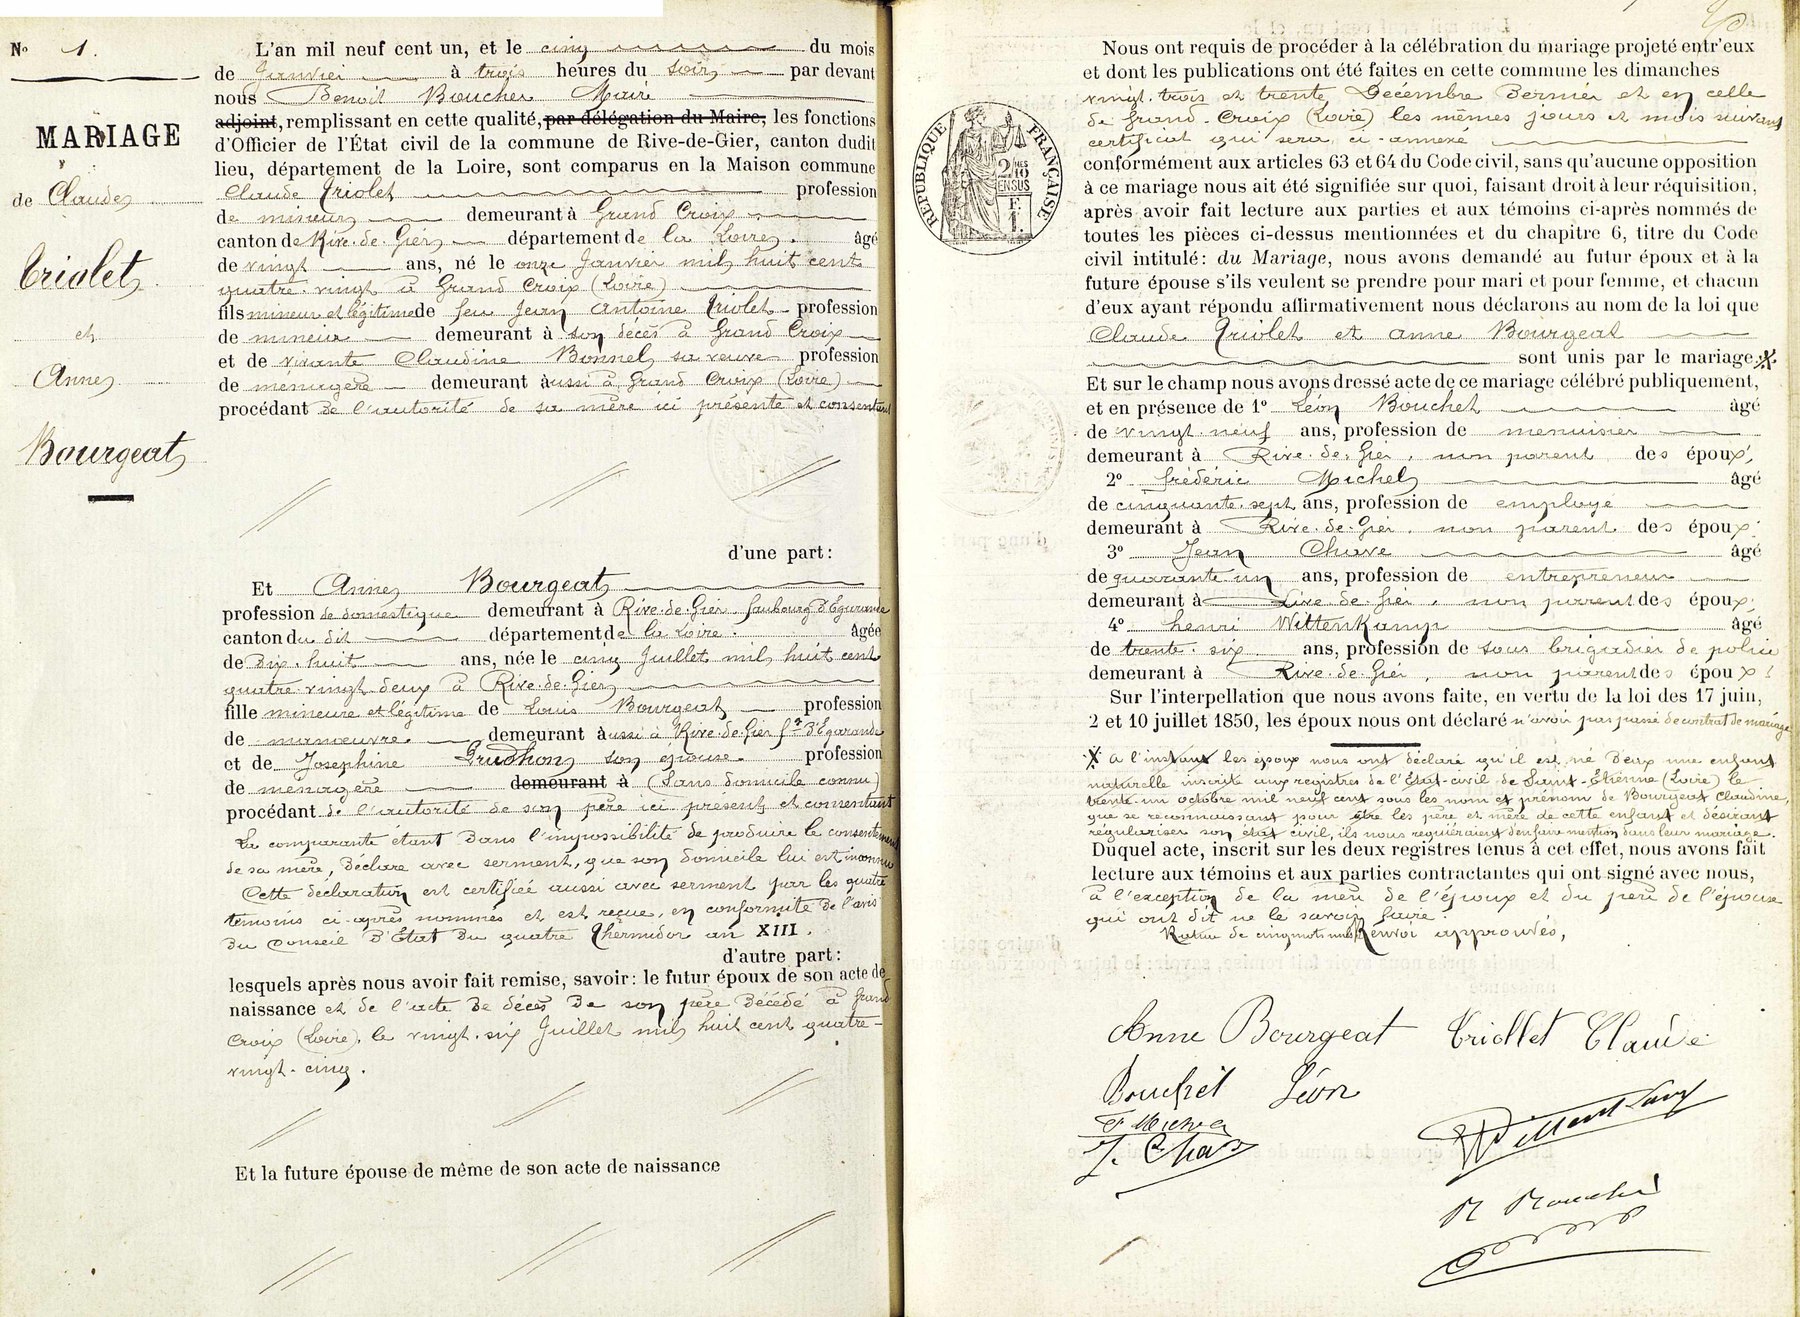 N° 1.
MARIAGE
de Claude
Triolet
et
Anne
Bourgeat
L'an mil neuf cent un, et le cinq du mois
de Janvier à trois heures du soir par devant
nous Benoit Boucher Maire
adjoint, remplissant en cette qualité, par délégation du Maire, les fonctions
d'Officier de l'État civil de la commune de Rive-de-Gier, canton dudit
lieu, département de la Loire, sont comparus en la Maison commune
Claude Triolet profession
de mineur demeurant à Grand Croix
canton de Rive-de-Gier département de la Loire. âgé
de vingt ans, né le onze Janvier mil huit cent
quatre-vingt à Grand Croix (Loire)
fils mineur et légitime de feu Jean Antoine Triolet profession
de mineur demeurant à son décès à Grand Croix
et de vivante Claudine Bonnel sa veuve profession
de ménagère demeurant aussi à Grand Croix (Loire)
procédant de l'autorité de sa mère ici présente et consentant
d'une part:
Et Anne Bourgeat
profession de domestique demeurant à Rive-de-Gier, faubourg d'Egarande
canton du dit département de la Loire. âgée
de Dix-huit ans, née le cinq Juillet mil huit cent
quatre-vingt-deux à Rive-de-Gier
fille mineure et légitime de Louis Bourgeat profession
de manoeuvre demeurant aussi à Rive-de-Gier fg d'Egarande
et de Josephine Prudhon son épouse profession
de ménagère demeurant à (Sans domicile connu)
procédant de l'autorité de son père ici présent et consentant
La comparante étant dans l'impossibilité de produire le consentement
de sa mère, déclare avec serment, que son domicile lui est inconnu
Cette déclaration est certifiée aussi avec serment par les quatre
témoins ci-après nommés et est reçue, en conformité de l'avis
du Conseil d'État du quatre Thermidor an XIII.
d'autre part:
lesquels après nous avoir fait remise, savoir: le futur époux de son acte de
naissance et de l'acte de décès de son père décédé à Grand
Croix (Loire), le vingt-six Juillet mil huit cent quatre-
vingt-cinq.
Et la future épouse de même de son acte de naissance
Nous ont requis de procéder à la célébration du mariage projeté entr'eux
et dont les publications ont été faites en cette commune les dimanches
vingt-trois et trente Décembre dernier et en celle
de Grand-Croix (Loire) les mêmes jours et mois suivant
certificat qui sera ci-annexé
conformément aux articles 63 et 64 du Code civil, sans qu'aucune opposition
à ce mariage nous ait été signifiée sur quoi, faisant droit à leur réquisition,
après avoir fait lecture aux parties et aux témoins ci-après nommés de
toutes les pièces ci-dessus mentionnées et du chapitre 6, titre du Code
civil intitulé: du Mariage, nous avons demandé au futur époux et à la
future épouse s'ils veulent se prendre pour mari et pour femme, et chacun
d'eux ayant répondu affirmativement nous déclarons au nom de la loi que
Claude Triolet et Anne Bourgeat
sont unis par le mariage. X
Et sur le champ nous avons dressé acte de ce mariage célébré publiquement,
et en présence de 1° Léon Bouchet âgé
de vingt-neuf ans, profession de menuisier
demeurant à Rive-de-Gier, non parent des époux,
2° frédéric Michel âgé
de cinquante-sept ans, profession de employé
demeurant à Rive-de-Gier, non parent des époux;
3° Jean Chave âgé
de quarante-un ans, profession de entrepreneur
demeurant à Rive-de-Gier, non parent des époux;
4° henri Wittenkamp âgé
de trente-six ans, profession de sous brigadier de police
demeurant à Rive-de-Gier, non parent des époux;
Sur l'interpellation que nous avons faite, en vertu de la loi des 17 juin,
2 et 10 juillet 1850, les époux nous ont déclaré n'avoir pas passé de contrat de mariage
X A l'instant les époux nous ont déclaré qu'il est né d'eux une enfant
naturelle inscrite aux registres de l'Etat-civil de Saint-Etienne (Loire) le
trente-un octobre mil neuf cent sous les nom et prénom de Bourgeat Claudine,
que se reconnaissant pour être les père et mère de cette enfant et désirant
régulariser son état civil, ils nous requièraient d'en faire mention dans leur mariage.
Duquel acte, inscrit sur les deux registres tenus à cet effet, nous avons fait
lecture aux témoins et aux parties contractantes qui ont signé avec nous,
à l'exception de la mère de l'époux et du père de l'épouse
qui ont dit ne le savoir faire.
Rature de cinq mots nuls Renvoi approuvés,
Anne Bourgeat Triollet Claude
Bouchet Léon
F Michel
J. Chave
Wittenkamp
B Boucher
RÉPUBLIQUE FRANÇAISE